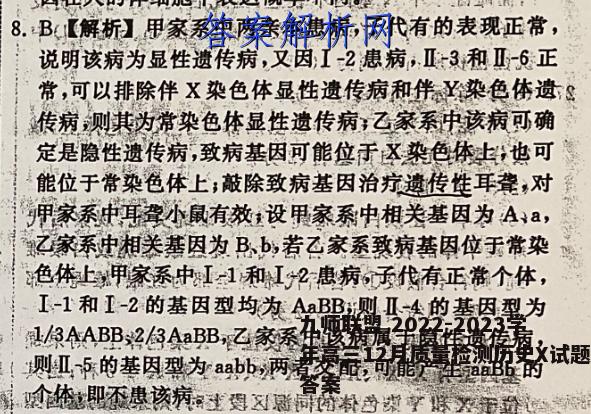 8. B【解析】甲家系中两亲本患病,子代有的表现正常,
答案解析网
说明该病为显性遗传病,又因Ⅰ-2患病,Ⅱ-3和Ⅱ-6正
常,可以排除伴X染色体显性遗传病和伴Y染色体遗
传病,则其为常染色体显性遗传病;乙家系中该病可确
定是隐性遗传病,致病基因可能位于X染色体上,也可
能位于常染色体上;敲除致病基因治疗遗传性耳聋,对
甲家系中耳聋小鼠有效;设甲家系中相关基因为A、a,
乙家系中相关基因为B、b,若乙家系致病基因位于常染
色体上,甲家系中Ⅰ-1和Ⅰ-2患病,子代有正常个体,
Ⅰ-1和Ⅰ-2的基因型均为AaBB,则Ⅱ-4的基因型为
1/3AABB、2/3AaBB,乙家系中该病属于隐性遗传病,
九师联盟 2022-2023学
年高三12月质量检测历史X试题
答案
则Ⅱ-5的基因型为aabb,两者交配,可能产生aaBb的
个体,即不患该病。